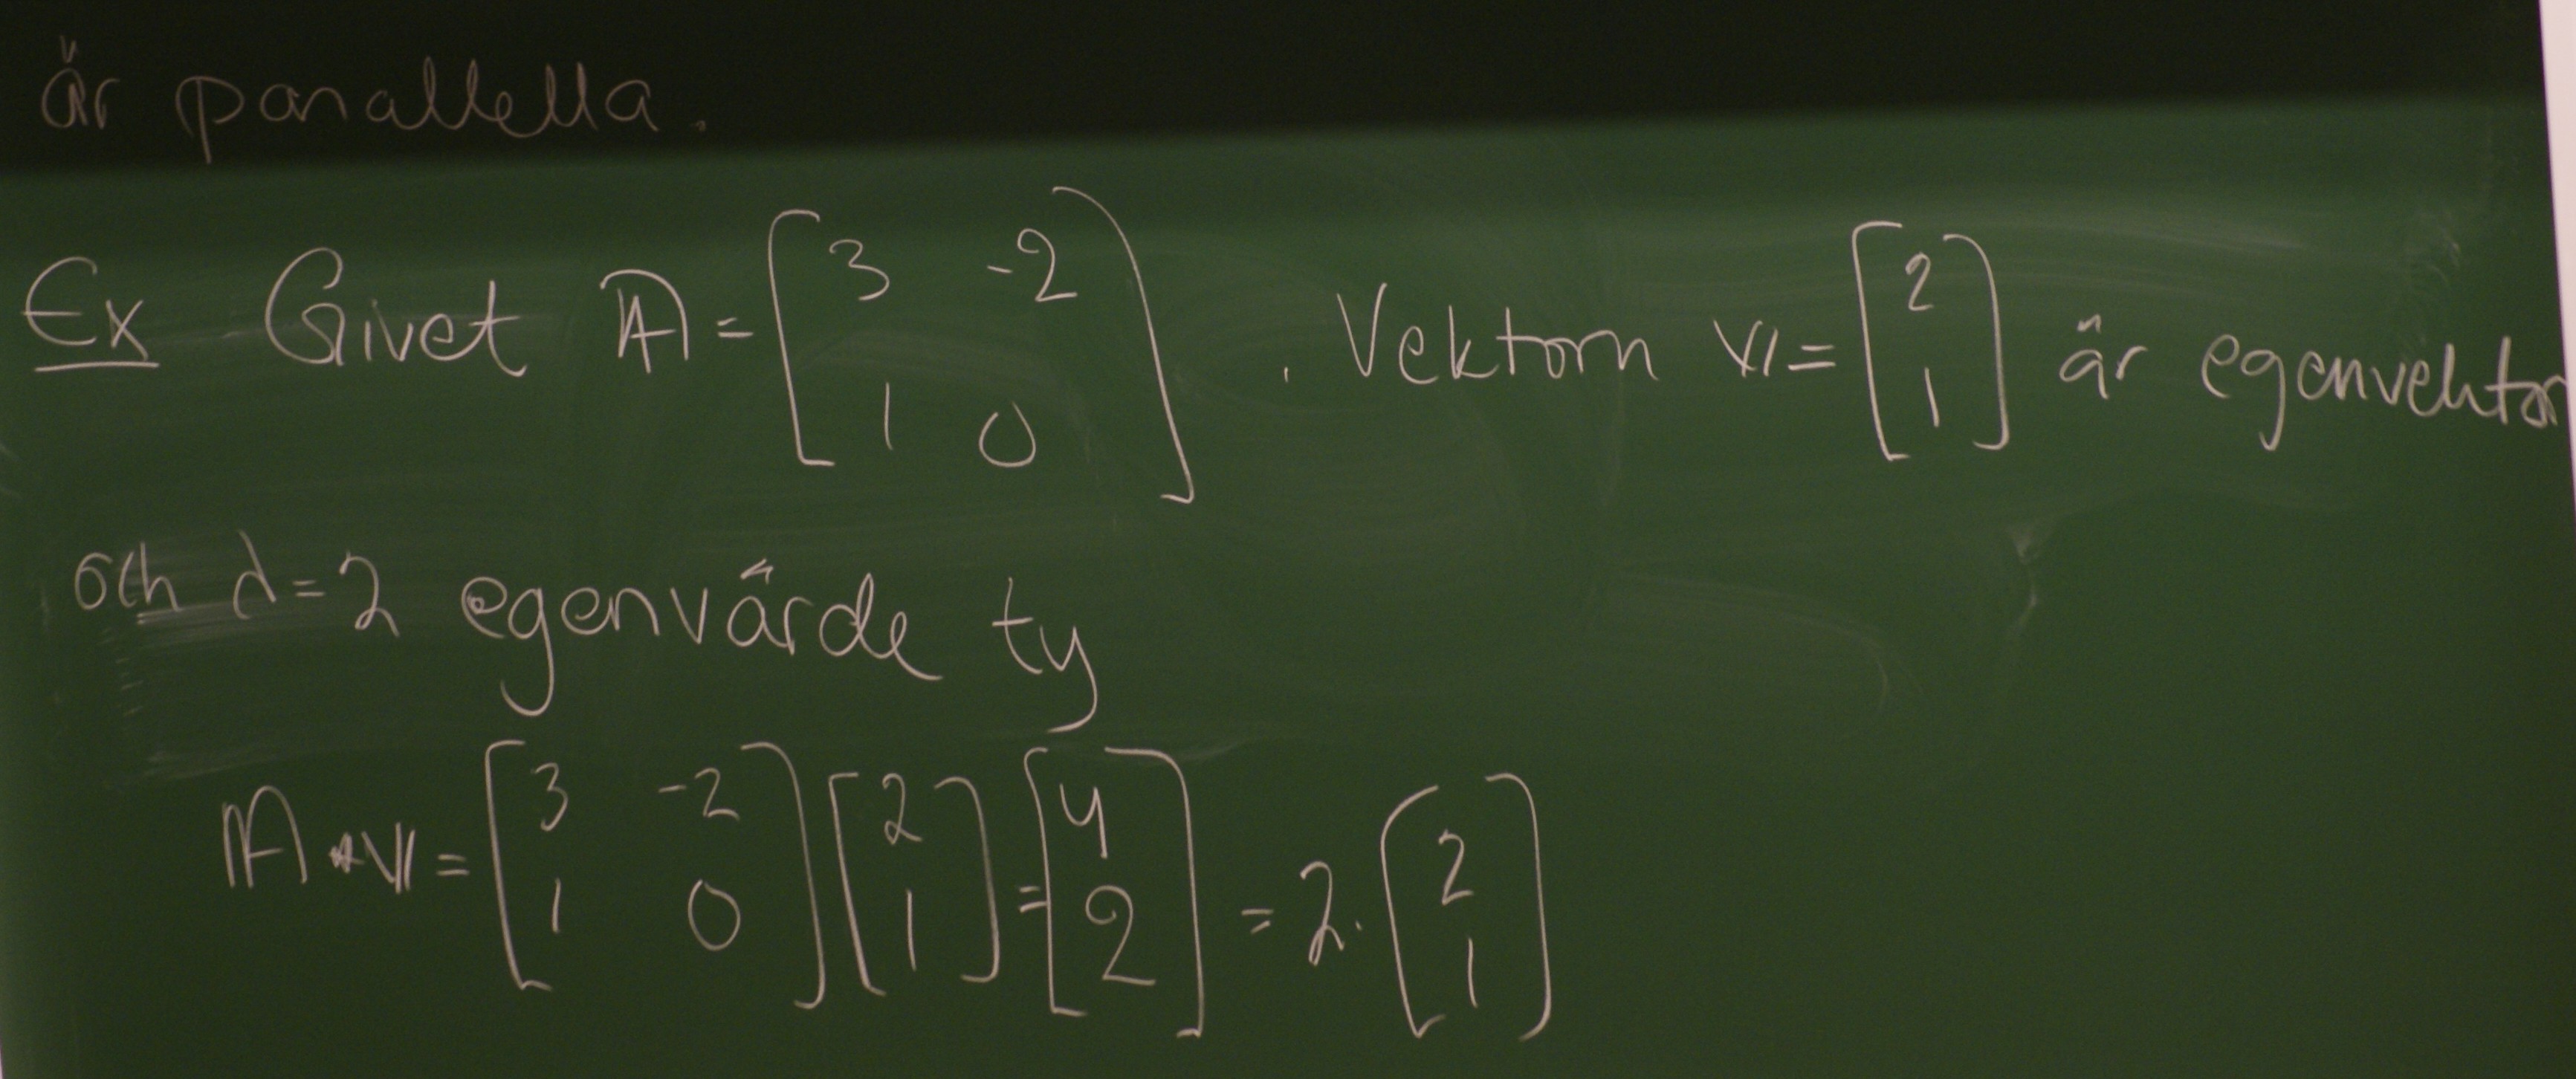 är parallella.
Ex Givet A = [ 3 -2 ; 1 0 ] . Vektorn v = [ 2 ; 1 ] är egenvektor
och λ = 2 egenvärde ty
A·v = [ 3 -2 ; 1 0 ] [ 2 ; 1 ] = [ 4 ; 2 ] = 2 · [ 2 ; 1 ]